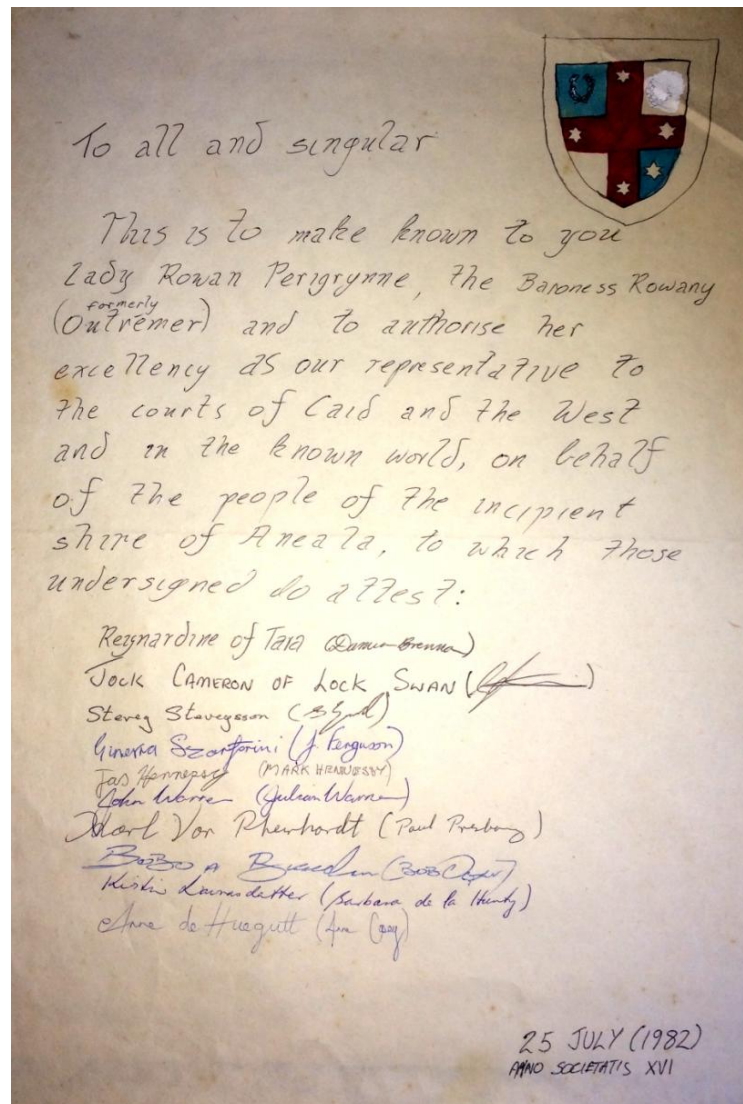 To all and singular
This is to make known to you
Lady Rowan Perigrynne, the Baroness Rowany
formerly
(Outremer) and to authorise her
excellency as our representative to
the courts of Caid and the West
and in the known world, on behalf
of the people of the incipient
shire of Aneala, to which those
undersigned do attest:
Reynardine of Tara (Damien Brennan)
JOCK CAMERON OF LOCK SWAN
Steveg Stevegsson
Ginevra (J. Ferguson)
Jas Hennessy (MARK HENNESSY)
John Warne (Julian Warne)
Karl Von Rheinhardt (Paul
BoBo
Kirstin (Barbara de la Hunty)
Anne de Huegutt
25 JULY (1982)
ANNO SOCIETATIS XVI